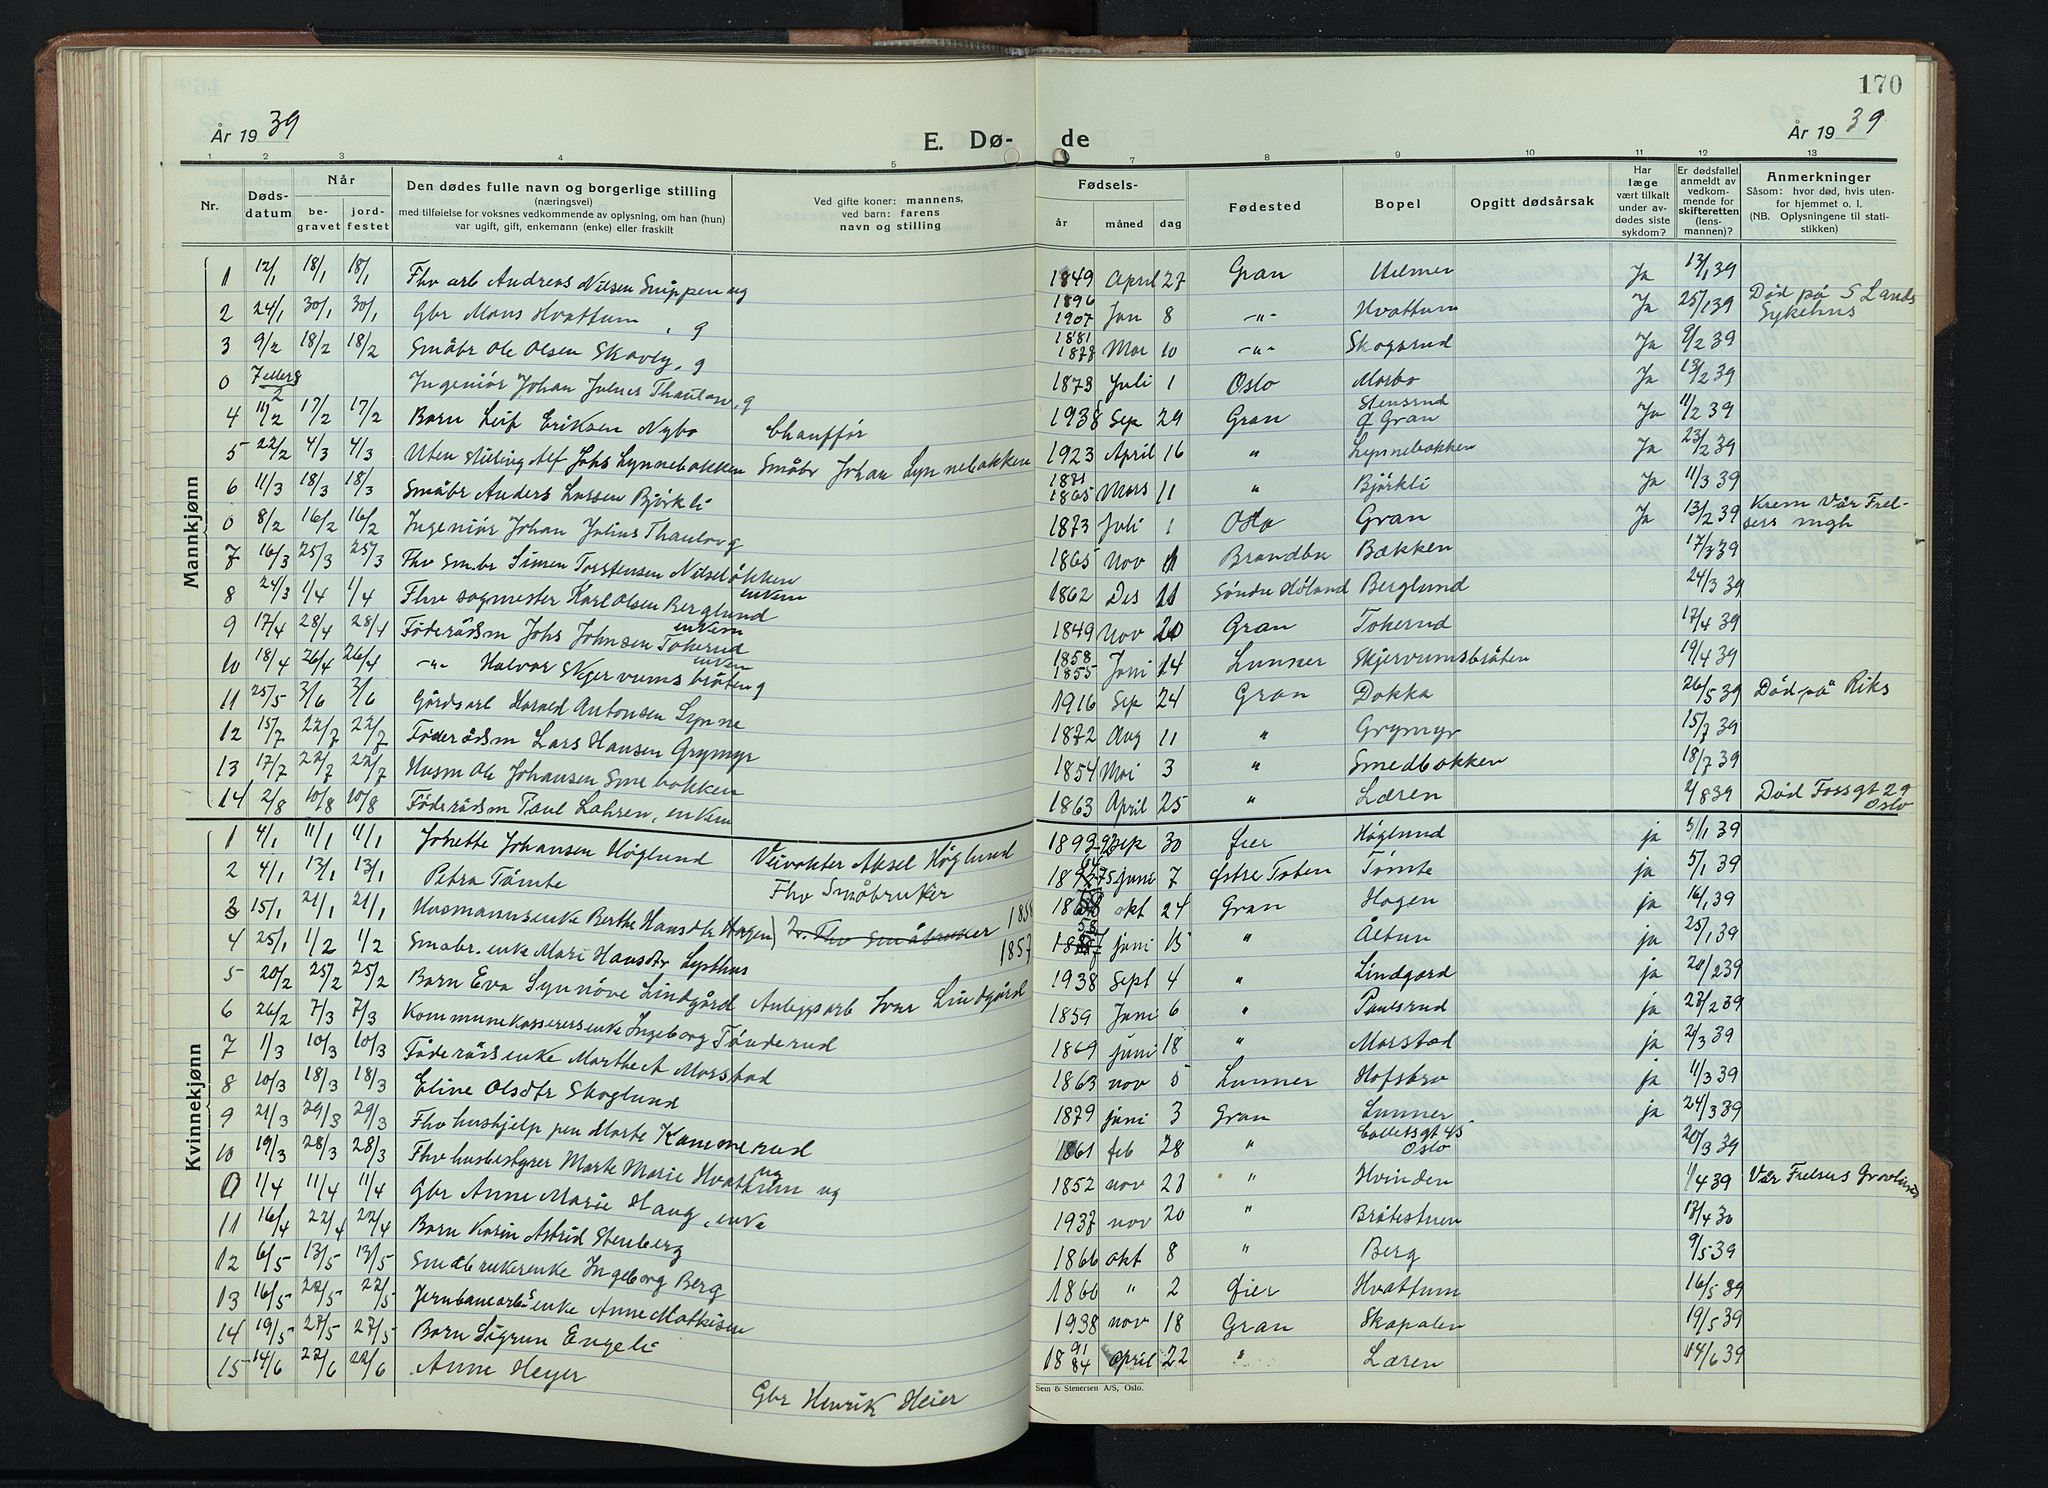 170
År 19 39
E. Dø- de
År 19 39
1 2 3 4 5 7 8 9 10 11 12 13
Nr.
Døds-
datum
Når
be-
gravet
jord-
festet
Den dødes fulle navn og borgerlige stilling
(næringsvei)
med tilføielse for voksnes vedkommende av oplysning, om han (hun)
var ugift, gift, enkemann (enke) eller fraskilt
Ved gifte koner: mannens,
ved barn: farens
navn og stilling
Fødsels-
år måned dag
Fødested
Bopel
Opgitt dødsårsak
Har
læge
vært tilkalt
under av-
dødes siste
sykdom?
Er dødsfallet
anmeldt av
vedkom-
mende for
skifteretten
(lens-
mannen)?
Anmerkninger
Såsom: hvor død, hvis uten-
for hjemmet o. l.
(NB. Oplysningene til stati-
stikken)
Mannkjønn
1 12/1 18/1 18/1 Fhv arb Andreas Nilsen Snippen ug 1849 April 27 Gran Helmer Ja 13/1 39
2 24/1 30/1 30/1 Gbr Mons Hvattum, g 1896 1907 Jan 8 -"- Hvattum Ja 25/1 39 Død på S Lands Sykehus
3 9/2 18/2 18/2 Småbr Ole Olsen Skavly, g 1881 1878 Mar 10 -"- Skogsrud Ja 9/2 39
0 7 eller 8/2 Ingeniör Johan Julius Thaulow, g 1873 Juli 1 Oslo Morbo Ja 13/2 39
4 11/2 17/2 17/2 Barn Leif Eriksen Nybo Chauffør 1938 Sep 29 Gran Stensrud Ø Gran Ja 11/2 39
5 22/2 4/3 4/3 Uten stilling Alf Johs Lynnebakken Småbr Johan Lynnebakken 1923 April 16 " Lynnebakken Ja 23/2 39
6 11/3 18/3 18/3 Småbr Anders Larsen Björkli 1871 1865 Mars 11 " Björkli Ja 11/3 39
0 8/2 16/2 16/2 Ingeniör Johan Julius Thaulov g 1873 Juli 1 Oslo Gran Ja 13/2 39 Krem Vår Frelsers mgh
7 16/3 25/3 25/3 Fhv Sm.br Simen Torstensen Nilsebakken enkem 1865 Nov 11 Brandbu Bækken 17/3 39
8 24/3 1/4 1/4 Fhv sagmester Karl Olsen Berglund enkem 1862 Des 11 Søndre Høland Berglund 24/3 39
9 17/4 28/4 28/4 Föderådsm Johs Johnsen Tokerud enkem 1849 Nov 20 Gran Tokerud 17/4 39
10 18/4 26/4 26/4 -"- Halvor Skjervumsbråten g 1858 1855 Juni 14 Lunner Skjervumsbråten 19/4 39
11 25/5 3/6 3/6 Gårdsarb Harald Antonsen Lynne 1916 Sep 24 Gran Dokka 26/5 39 Død på Riks
12 15/7 22/7 22/7 Föderådsm Lars Hansen Grymyr 1872 Aug 11 " Grymyr 15/7 39
13 17/7 22/7 22/7 Husm Ole Johansen Smebakken 1854 Mai 3 " Smedbakken 18/7 39
14 2/8 10/8 10/8 Föderådsm Paul Lahren, enkem 1863 April 25 " Læren 2/8 39 Død Fossgt 29 Oslo
Kvinnekjønn
1 4/1 11/1 11/1 Johette Johansen Höglund Veivokter Aksel Höglund 1892 93 Sep 30 Øier Höglund ja 5/1 39
2 4/1 13/1 13/1 Petra Tömte Fhv Småbruker juni 7 Østre Toten Tömte ja 5/1 39
3 15/1 21/1 21/1 Husmannsenke Berthe Hansdtr Hagen Fhv Småbruker okt 24 Gran Hagen ja 16/1 39
4 25/1 1/2 1/2 Småbr. enke Mari Hansdtr Lysthus 1857 juni 15 " Ålbun ja 25/1 39
5 20/2 25/2 25/2 Barn Eva Synnöve Lindgård Anleggsarb Ivar Lindgård 1938 Sept 4 " Lindgard ja 20/2 39
6 26/2 7/3 7/3 Kommunekassererenke Ingeborg Tönderud 1859 Juni 6 " Paulsrud ja 27/2 39
7 1/3 10/3 10/3 Föderådsenke Marthe A Morstad 1869 juni 18 " Morstad ja 2/3 39
8 10/3 18/3 18/3 Eline Olsdtr Skoglund 1863 nov 5 Lunner Hofsbro ja 11/3 39
9 21/3 29/3 29/3 Fhv hushjelp pen Marte Kammerud 1879 juni 3 Gran Lunner ja 24/3 39
10 19/3 28/3 28/3 Fhv husbestyrer Marte Marie Hvattum ug 1861 feb 28 " Colletsgt 45 Oslo 20/3 39
0 1/4 11/4 11/4 Gbr Anne Marie Haug, enke 1852 nov 23 " Hvinden 1/4 39 Vår Frelsers Gravlund
11 16/4 22/4 22/4 Barn Karin Astrid Stenberg 1937 nov 20 " Bråtestuen 17/4 30
12 6/5 13/5 13/5 Småbrukerenke Ingeborg Berg 1866 okt 8 " Berg 9/5 39
13 16/5 22/5 22/5 Jernbanearb.s enke Anne Mathisen 1866 " 2 Øier Hvattum 16/5 39
14 19/5 27/5 27/5 Barn Sigrun Engeli 1938 nov 18 Gran Skapalen 19/5 39
15 14/6 22/6 22/6 Anne Heyer Gbr Henrik Heier 18 91 84 April 22 " Læren 14/6 39
Sem & Stenersen A/S, Oslo.